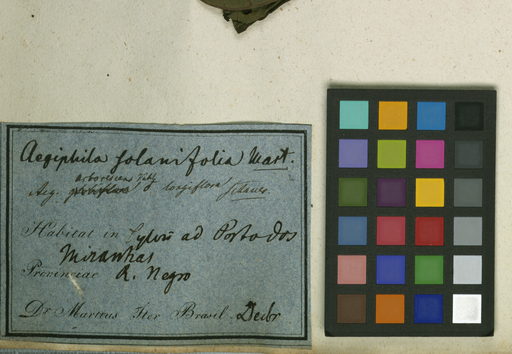 Aegiphila solanifolia Mart.
arborescens Vahl
Aeg. longiflora Schauer
Habitat in Sylvis ad Porto dos
Miranhas
Provinciae R. Negro
Dr. Martius Iter Brasil. Decbr